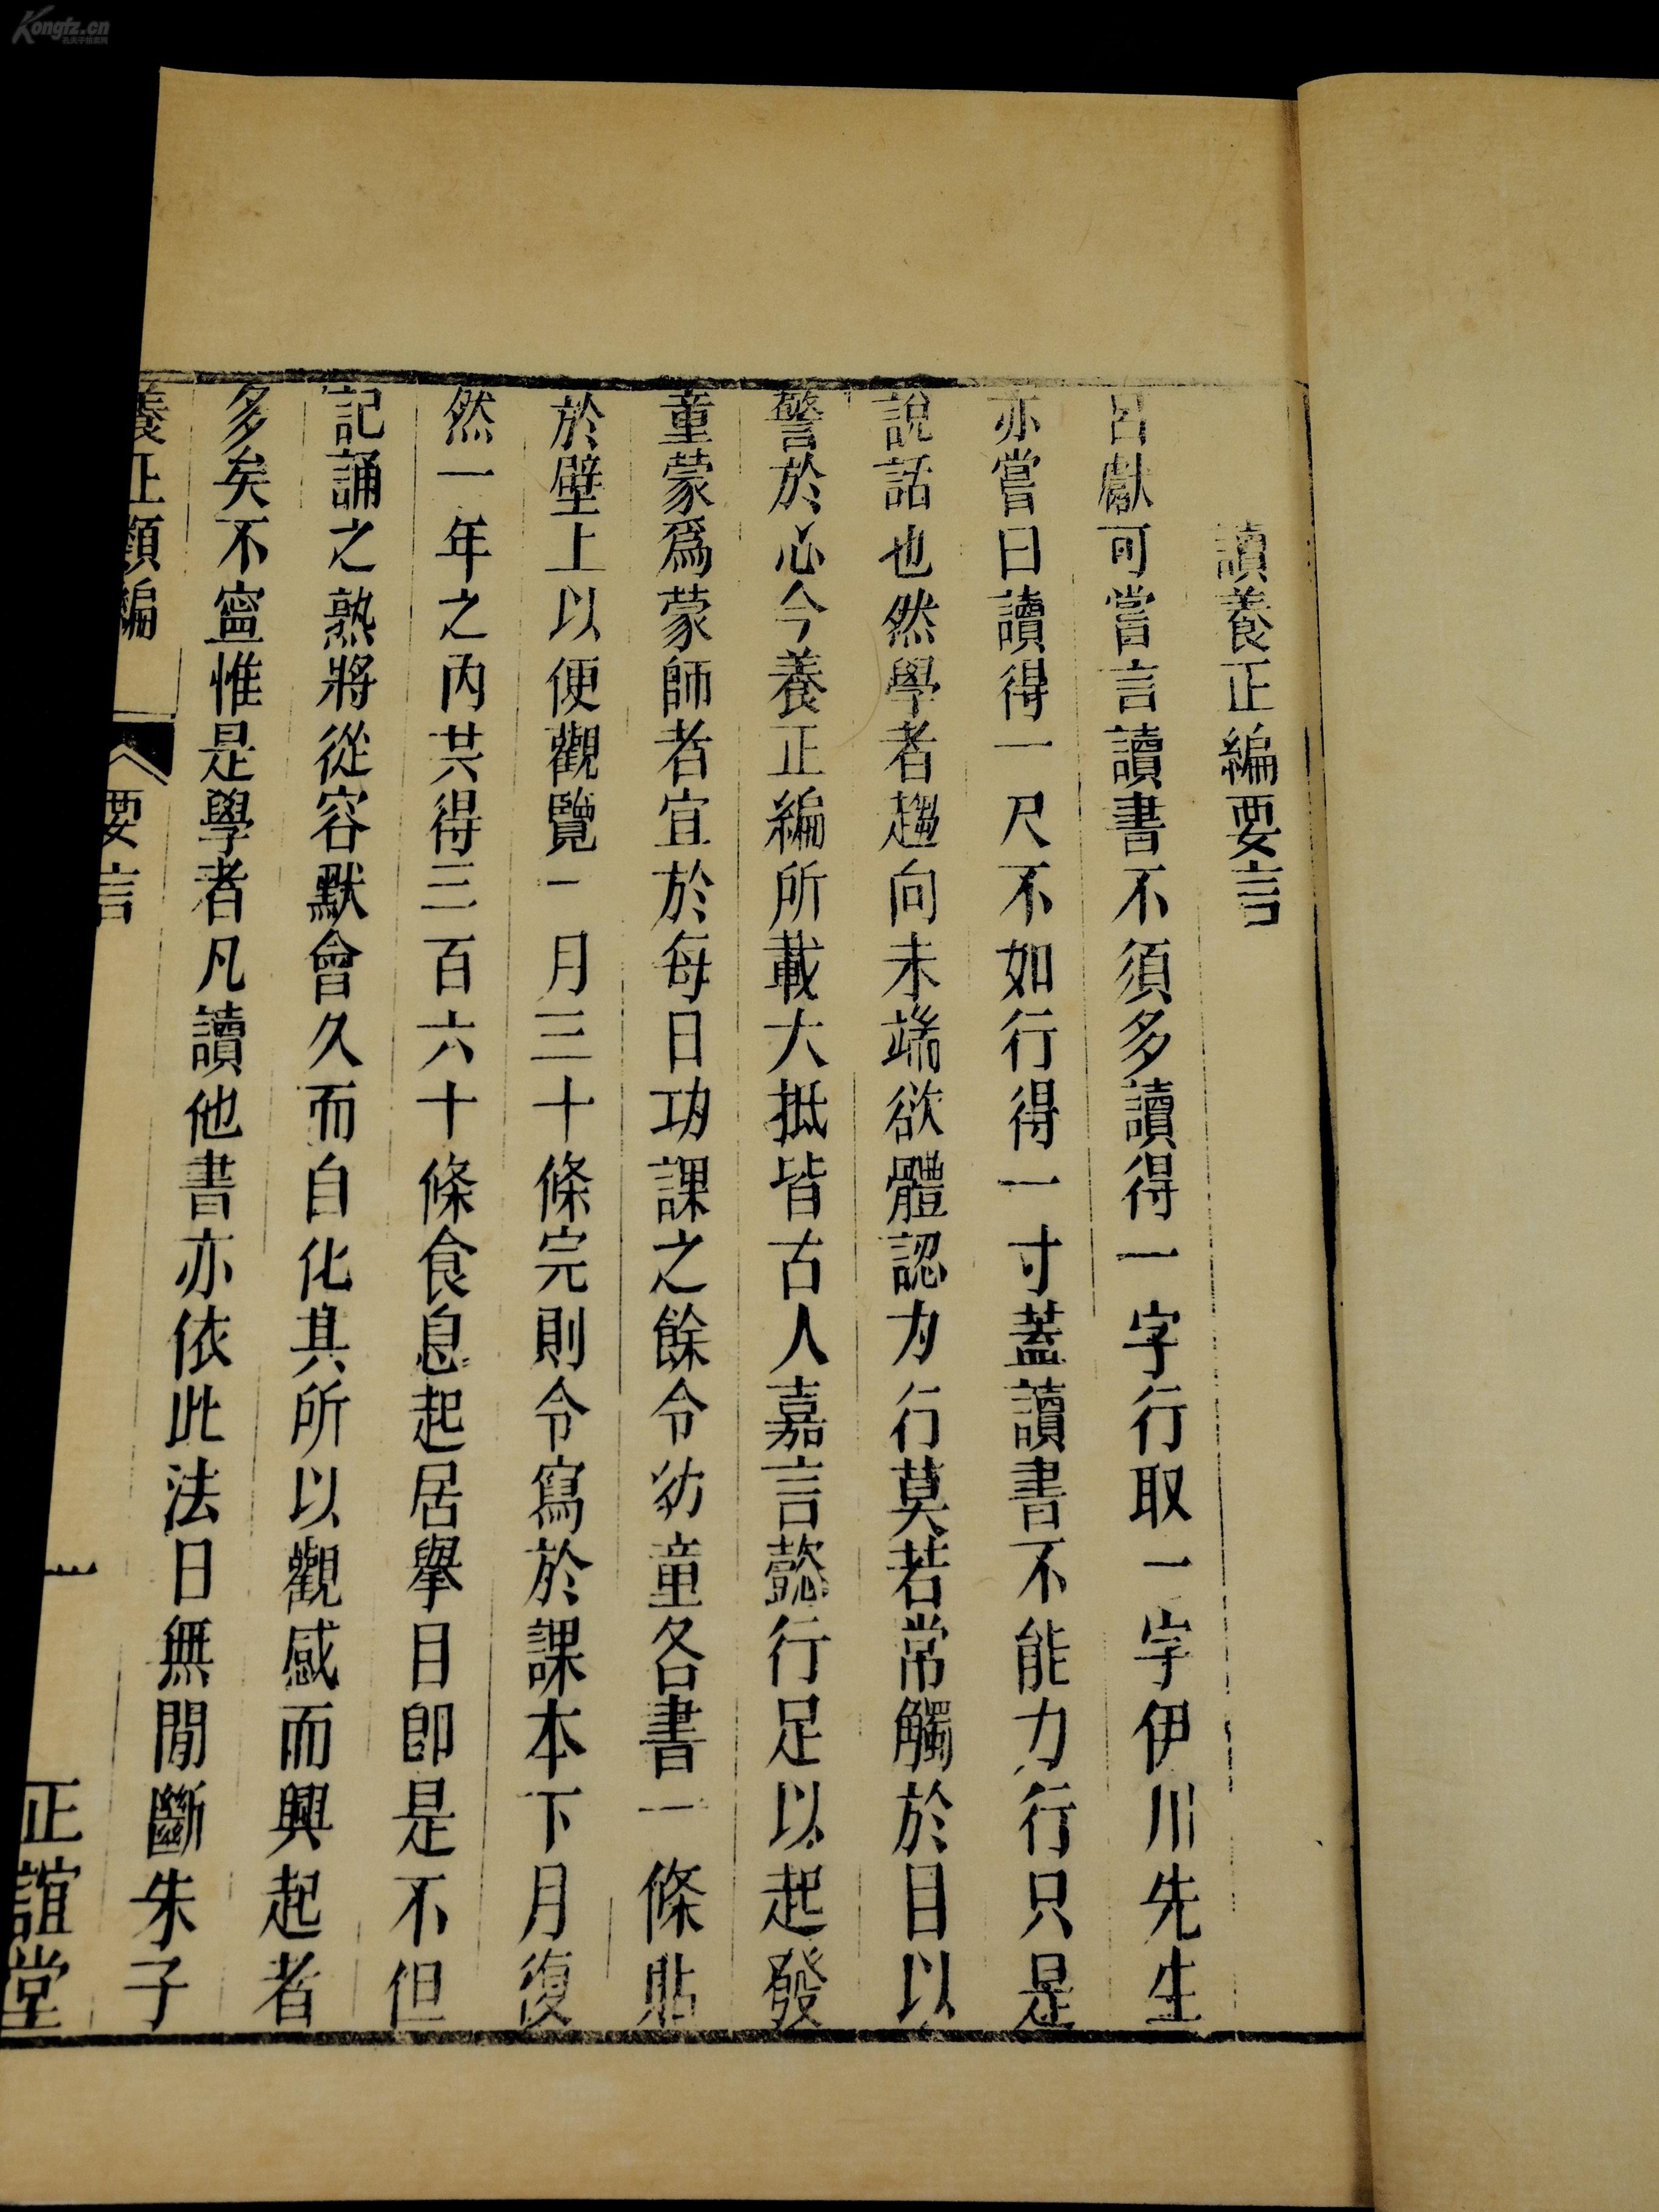 讀養正編要言
呂獻可嘗言讀書不須多讀得一字行取一字伊川先生
亦嘗曰讀得一尺不如行得一寸蓋讀書不能力行只是
說話也然學者趨向未端欲體認力行莫若常觸於目以
警於心今養正編所載大抵皆古人嘉言懿行足以起發
童蒙爲蒙師者宜於每日功課之餘令幼童各書一條貼
於壁上以便觀覽一月三十條完則令寫於課本下月復
然一年之內共得三百六十條食息起居舉目卽是不但
記誦之熟將從容默會久而自化其所以觀感而興起者
多矣不寧惟是學者凡讀他書亦依此法日無間斷朱子
養正類編 要言 一 正誼堂
Kongfz.cn